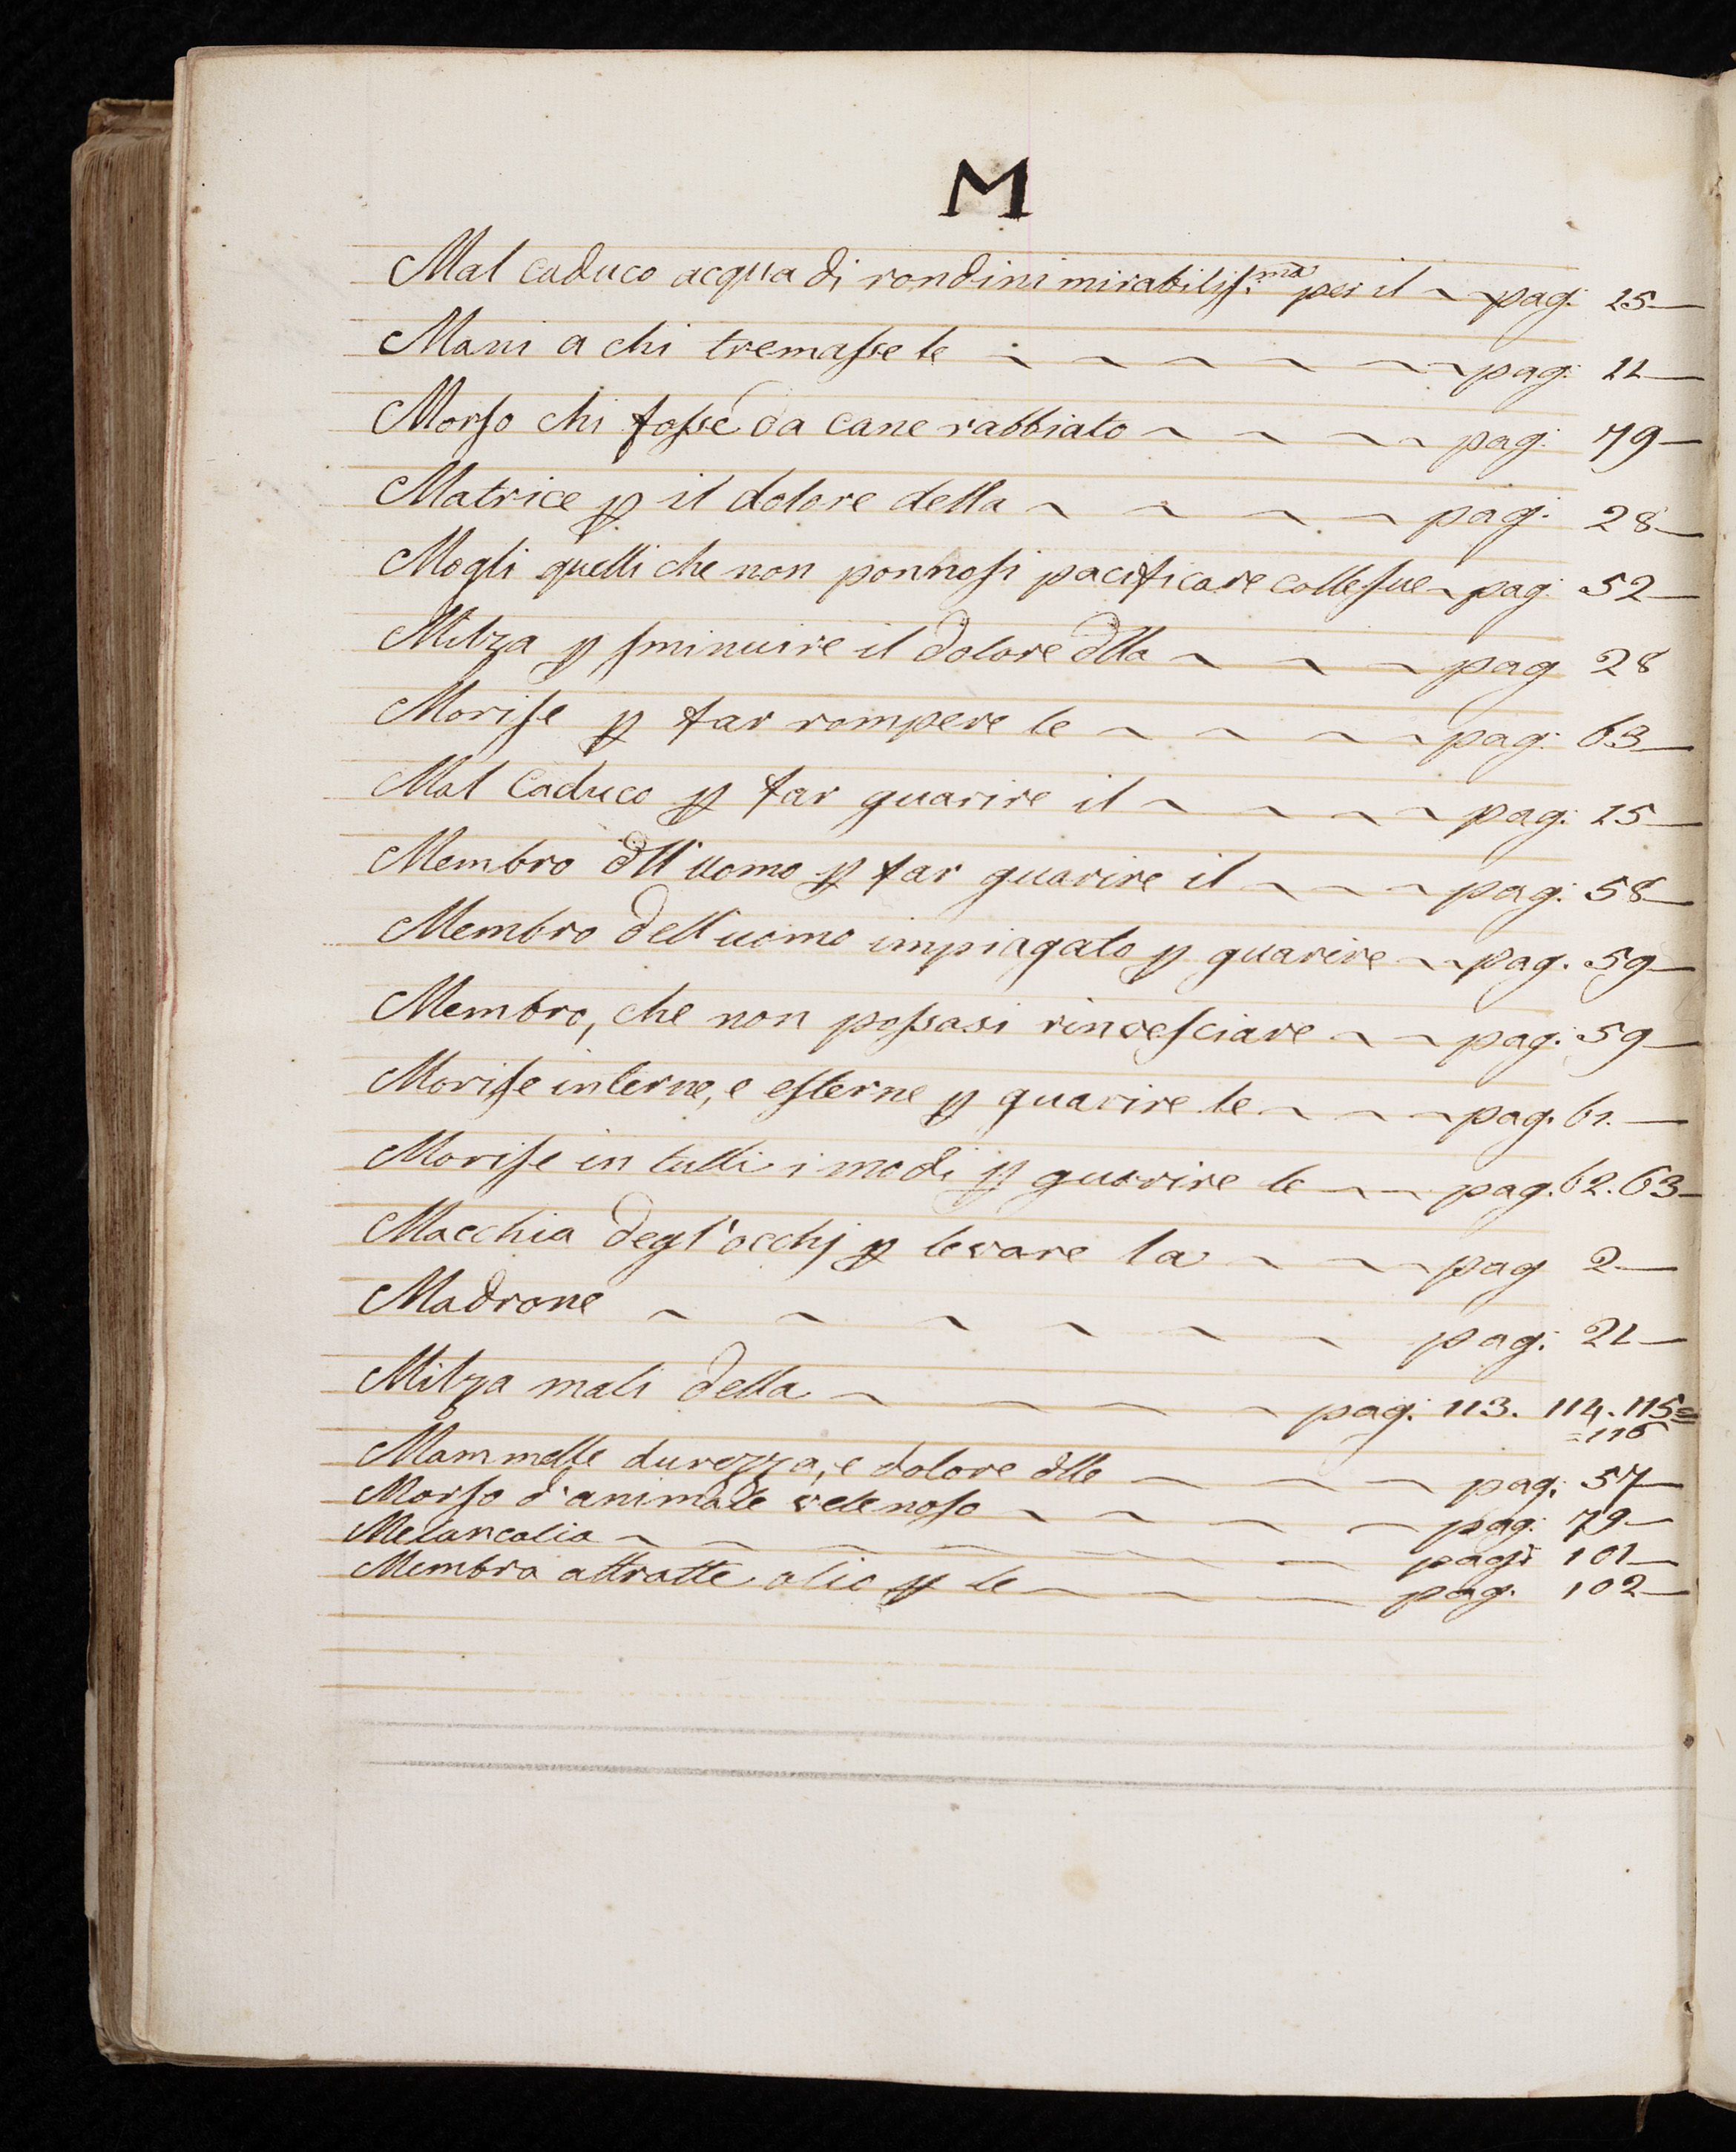 M
Mal caduco acqua di rondini mirabiliss.ma per il ~ ~ pag: 15
Mani a chi tremasse le ~ ~ ~ ~ ~ ~ pag: 11
Morso chi fosse da cane rabbiato ~ ~ ~ ~ pag: 79
Matrice ꝑ il dolore della ~ ~ ~ ~ pag: 28
Mogli quelli che non ponnosi pacificare colle sue ~ pag: 52
Milza ꝑ sminuire il dolore dlla ~ ~ ~ pag 28
Morise ꝑ far rompere le ~ ~ ~ ~ pag: 63
Mal Caduco ꝑ far guarire il ~ ~ ~ ~ pag: 15
Membro dll'uomo ꝑ far guarire il ~ ~ ~ pag: 58
Membro dell'uomo impiagato ꝑ guarire ~ ~ pag. 59
Membro, che non possasi rinvesciare ~ ~ pag: 59
Morise interne, e esterne ꝑ guarire le ~ ~ ~ pag. 61.
Morise in tutti i modi ꝑ guarire le ~ ~ pag. 62. 63
Macchia degl'occhj ꝑ levare la ~ ~ ~ pag 2
Madrone ~ ~ ~ ~ ~ ~ pag: 21
Milza mali della ~ ~ ~ ~ pag: 113. 114. 115=
=116
Mammelle durezza, e dolore dlle ~ ~ ~ pag: 57
Morso d'animale velenoso ~ ~ ~ ~ pag: 79
Melancolia ~ ~ ~ ~ ~ ~ ~ pag: 101
Membra attratte olio ꝑ le ~ ~ ~ pag. 102